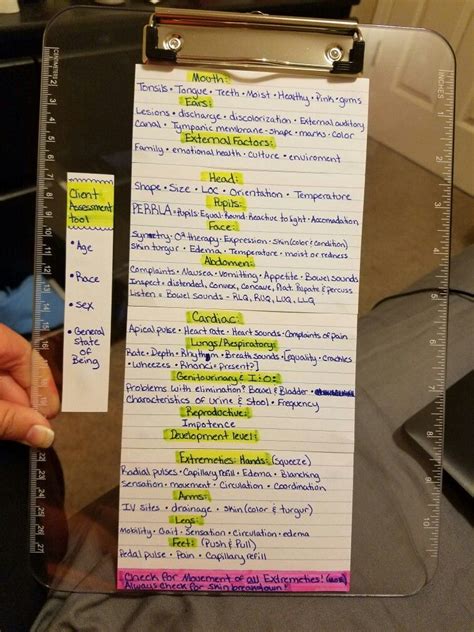 Client
Assessment
tool
• Age
• Race
• Sex
• General
State
of
Being
Mouth:
Tonsils • Tongue • Teeth • Moist • Healthy • Pink • gums
Ears:
Lesions • discharge • discolorization • External auditory
Canal • Tympanic membrane • shape • marks • color
External Factors:
Family • emotional health • culture • enviroment
Head:
Shape • Size • LOC • Orientation • Temperature
Pupils:
PERRLA • Pupils Equal Round Reactive to light • Accomodation
Face:
Symetry • O² therapy • Expression • Skin (color & condition)
Skin turgur • Edema • Temperature • moist or redness
Abdomen:
Complaints • Nausea • Vomitting • Appetite • Bowel sounds
Inspect = distended, Convex, Concave, Flat & percuss
Listen = Bowel sounds - RLQ, RUQ, LUQ, LLQ
Cardiac:
Apical pulse • Heart rate • Heart sounds • Complaints of pain
Lungs/Respiratory:
Rate • Depth • Rhythm • Breath sounds • [equality • Crackles
• Wheezes • Rhonci • present?]
Genitourinary & I:O:
Problems with elimination? Bowel & Bladder •
Characteristics of urine & Stool • Frequency
Reproductive:
Impotence
Development level:
Extremeties: Hands: (squeeze)
Radial pulses • Capillary refill • Edema • Blanching
Sensation • movement • Circulation • Coordination
Arms:
IV Sites • drainage • skin (color & turgur)
Legs:
Mobility • Gait • Sensation • Circulation • edema
Feet: (Push & Pull)
Pedal pulse • Pain • Capillary refill
Check for Movement of all Extremeties!
Always check for skin breakdown!
CENTIMETERS
1
2
3
4
5
6
7
8
9
10
11
12
13
14
15
16
17
18
19
20
21
22
23
24
25
26
27
INCHES
1
2
3
4
5
6
7
8
9
10